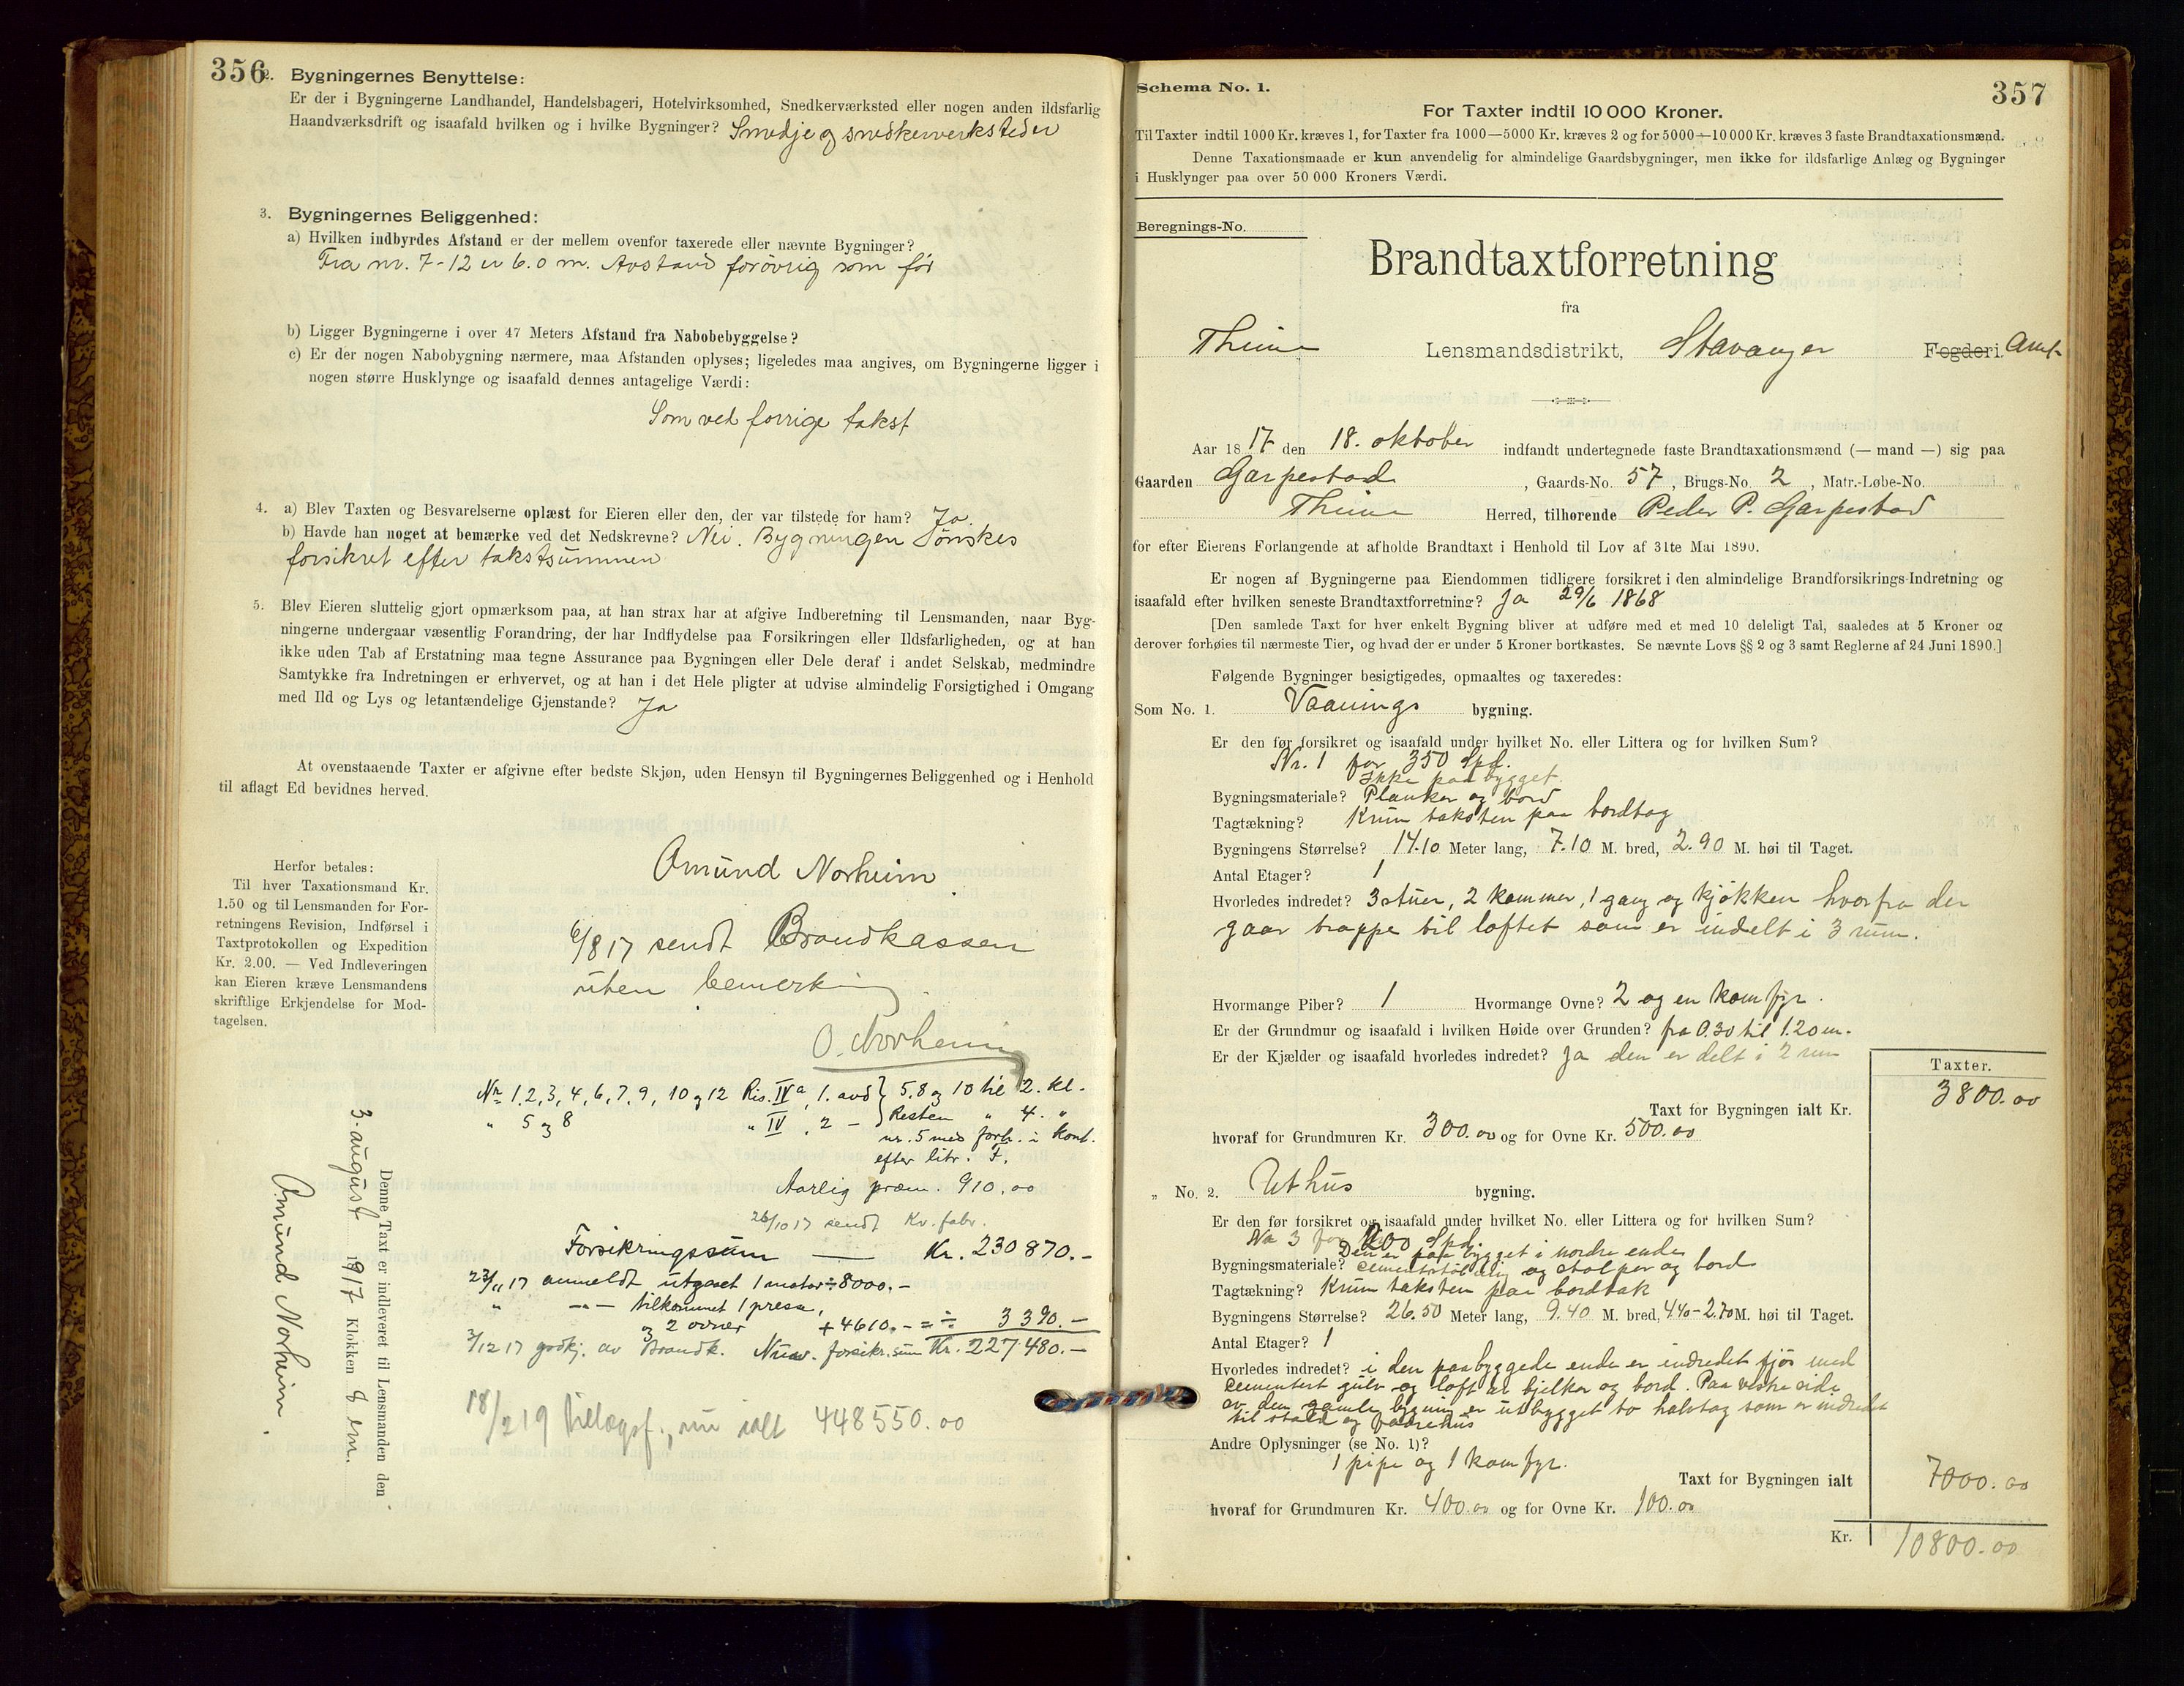 356
2. Bygningernes Benyttelse:
Er der i Bygningerne Landhandel, Handelsbageri, Hotelvirksomhed, Snedkerværksted eller nogen anden ildsfarlig
Haandværksdrift og isaafald hvilken og i hvilke Bygninger? Smedje og snedkerverksteder
3. Bygningernes Beliggenhed:
a) Hvilken indbyrdes Afstand er der mellem ovenfor taxerede eller nævnte Bygninger?
Fra nr. 7-12 er 6.0 m. Avstand forøvrig som før
b) Ligger Bygningerne i over 47 Meters Afstand fra Nabobebyggelse?
c) Er der nogen Nabobygning nærmere, maa Afstanden oplyses; ligeledes maa angives, om Bygningerne ligger i
nogen større Husklynge og isaafald dennes antagelige Værdi:
Som ved forrige takst
4. a) Blev Taxten og Besvarelserne oplæst for Eieren eller den, der var tilstede for ham? Ja.
b) Havde han noget at bemærke ved det Nedskrevne? Nei. Bygningen ønskes
forsikret efter takstsummen
5. Blev Eieren sluttelig gjort opmærksom paa, at han strax har at afgive Indberetning til Lensmanden, naar Byg-
ningerne undergaar væsentlig Forandring, der har Indflydelse paa Forsikringen eller Ildsfarligheden, og at han
ikke uden Tab af Erstatning maa tegne Assurance paa Bygningen eller Dele deraf i andet Selskab, medmindre
Samtykke fra Indretningen er erhvervet, og at han i det Hele pligter at udvise almindelig Forsigtighed i Omgang
med Ild og Lys og letantændelige Gjenstande? Ja
At ovenstaaende Taxter er afgivne efter bedste Skjøn, uden Hensyn til Bygningernes Beliggenhed og i Henhold
til aflagt Ed bevidnes herved.
Amund Norheim
Herfor betales:
Til hver Taxationsmand Kr.
1.50 og til Lensmanden for For-
retningens Revision, Indførsel i
Taxtprotokollen og Expedition
Kr. 2.00. — Ved Indleveringen
kan Eieren kræve Lensmandens
skriftlige Erkjendelse for Mod-
tagelsen.
6/8 17 sendt Brandkassen
uten bemerkning
O. Norheim
Nr. 1, 2, 3, 4, 6, 7, 9, 10 og 12 Ris. IVa, 1. avd } 5, 8 og 10 til 2. kl.
" 5 og 8 " IV, 2 - Resten " 4. "
nr. 5 med forh. i kont.
efter litr. F.
Aarlig præm. 910.00
26/10 17 sendt Kv. fabr.
Forsikringssum — Kr. 230 870.-
23/11 17 anmeldt utgaaet 1 motor ÷ 8000.-
" -"- tilkommet 1 presse,
og 2 ovner + 4610.- = ÷ 3 390.-
3/12 17 godkj. av Brandk. Nuv. forsikr.sum Kr. 227 480.-
18/2 19 tillægsf., nu ialt 448550.00
Denne Taxt er indleveret til Lensmanden den
3. august 1917 Klokken 8 em.
Amund Norheim.
357
Schema No. 1.
For Taxter indtil 10 000 Kroner.
Til Taxter indtil 1000 Kr. kræves 1, for Taxter fra 1000—5000 Kr. kræves 2 og for 5000—10000 Kr. kræves 3 faste Brandtaxationsmænd.
Denne Taxationsmaade er kun anvendelig for almindelige Gaardsbygninger, men ikke for ildsfarlige Anlæg og Bygninger
i Husklynger paa over 50 000 Kroners Værdi.
Beregnings-No.
Brandtaxtforretning
fra
Thime Lensmandsdistrikt, Stavanger Fogderi. Amt-
Aar 1817 den 18. oktober indfandt undertegnede faste Brandtaxationsmænd (— mand —) sig paa
Gaarden Garpestad, Gaards-No. 57, Brugs-No. 2, Matr.-Løbe-No.
Thime Herred, tilhørende Peder P. Garpestad
for efter Eierens Forlangende at afholde Brandtaxt i Henhold til Lov af 31te Mai 1890.
Er nogen af Bygningerne paa Eiendommen tidligere forsikret i den almindelige Brandforsikrings-Indretning og
isaafald efter hvilken seneste Brandtaxtforretning? Ja 29/6 1868
[Den samlede Taxt for hver enkelt Bygning bliver at udføre med et med 10 deleligt Tal, saaledes at 5 Kroner og
derover forhøies til nærmeste Tier, og hvad der er under 5 Kroner bortkastes. Se nævnte Lovs §§ 2 og 3 samt Reglerne af 24 Juni 1890.]
Følgende Bygninger besigtigedes, opmaaltes og taxeredes:
Som No. 1. Vaanings bygning.
Er den før forsikret og isaafald under hvilket No. eller Littera og for hvilken Sum?
Nr. 1 for 350 Spd.
Ikke paabygget.
Bygningsmateriale? Planker og bord
Tagtækning? Krum taksten paa bordtag
Bygningens Størrelse? 14.10 Meter lang, 7.10 M. bred, 2.90 M. høi til Taget.
Antal Etager? 1
Hvorledes indredet? 3 stuer, 2 kammer, 1 gang og kjøkken hvorfra der
gaar trappe til loftet som er indelt i 3 rum.
Hvormange Piber? 1 Hvormange Ovne? 2 og en komfyr.
Er der Grundmur og isaafald i hvilken Høide over Grunden? fra 0.30 til 1.20 m.
Er der Kjælder og isaafald hvorledes indredet? Ja den er delt i 2 rum
Taxter.
Taxt for Bygningen ialt Kr. 3800.00
hvoraf for Grundmuren Kr. 300.00 og for Ovne Kr. 500.00
" No. 2. Uthus bygning.
Er den før forsikret og isaafald under hvilket No. eller Littera og for hvilken Sum?
No 3 for 200 Spd.
Den er paabygget i nordre ende
Bygningsmateriale? og stolper og bord
Tagtækning? Krum taksten paa bordtak
Bygningens Størrelse? 26.50 Meter lang, 9.40 M. bred, 4.40-2.70 M. høi til Taget.
Antal Etager? 1
Hvorledes indredet? i den paabyggede ende er indredet fjøs med
cementert gulv og loft av bjelker og bord. Paa vestre side
av den gamle bygning er utbygget to halvtag som er indredet
til stald og
Andre Oplysninger (se No. 1)?
1 pipe og 1 komfyr.
Taxt for Bygningen ialt 7000.00
hvoraf for Grundmuren Kr. 400.00 og for Ovne Kr. 100.00
Kr. 10800.00